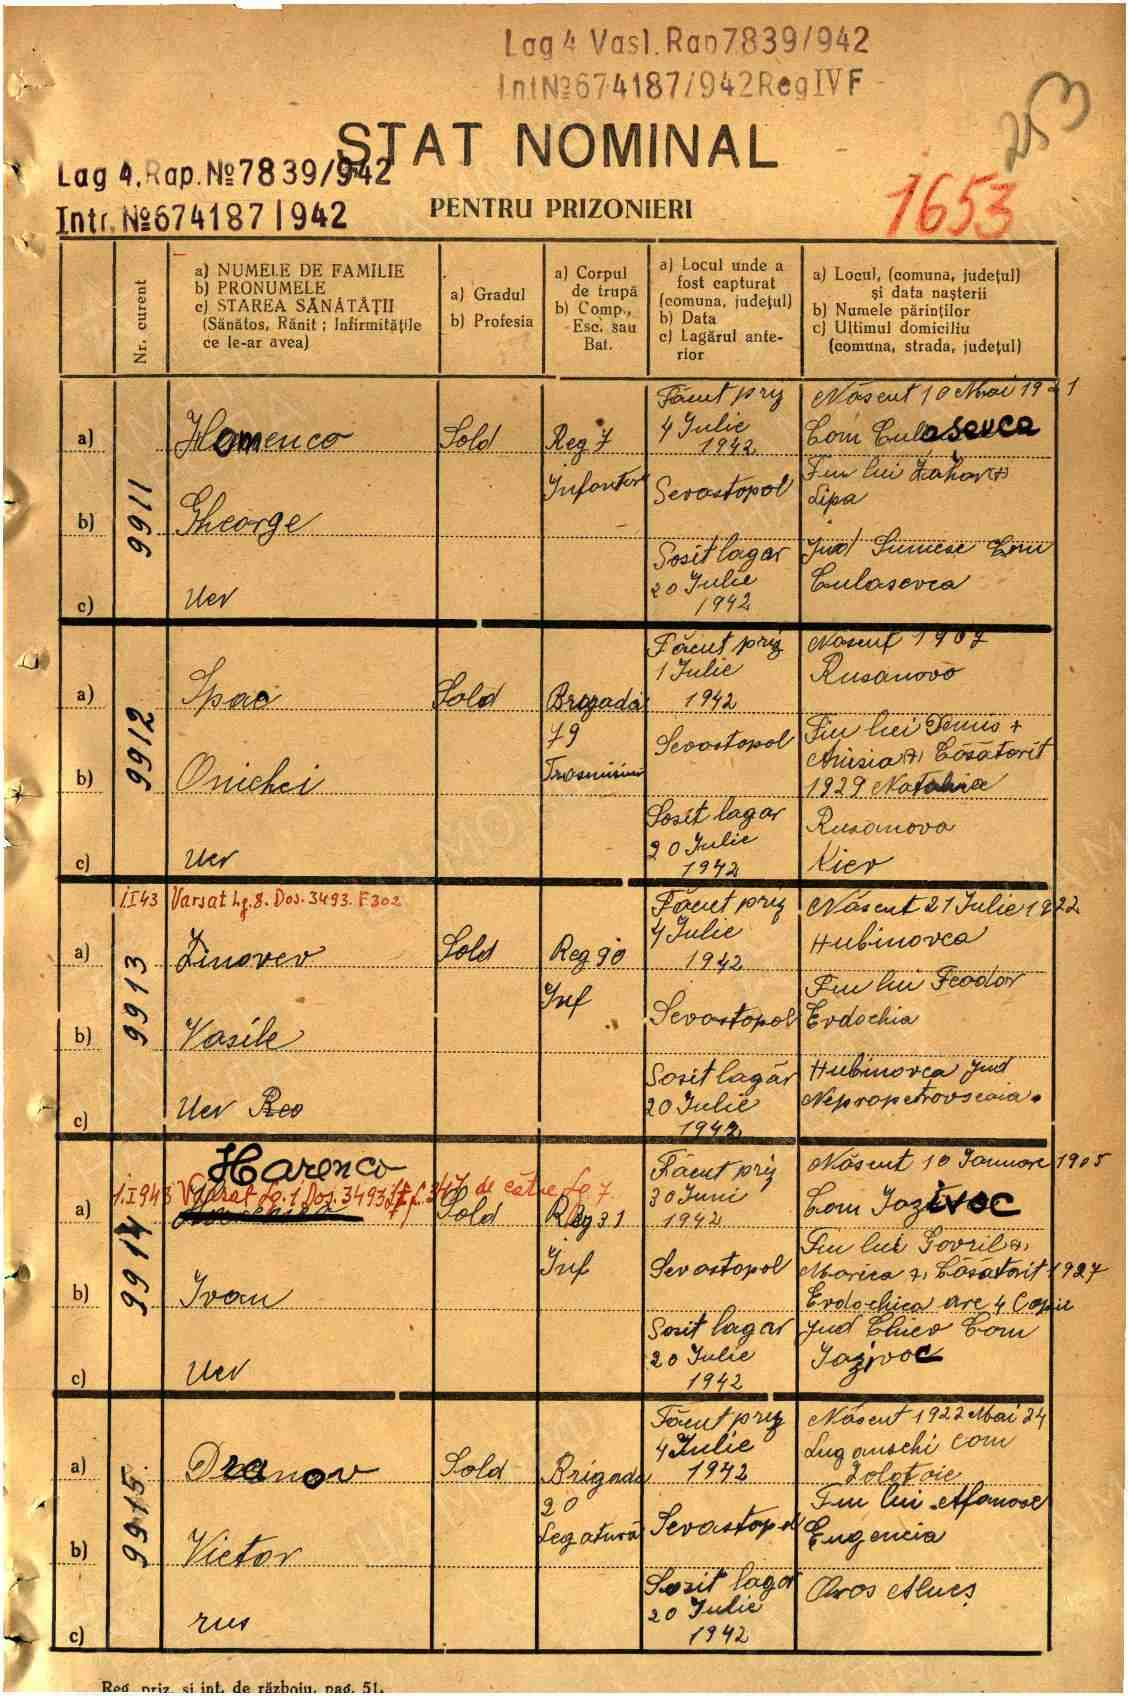 Lag 4 Vasl. Rap 7839/942
Int № 674187/942 Reg IV F
253
STAT NOMINAL
Lag 4. Rap. № 7839/942
1653
Intr. № 674187/942
PENTRU PRIZONIERI
Nr. curent
a) NUMELE DE FAMILIE
b) PRONUMELE
c) STAREA SĂNĂTĂȚII
(Sănătos, Rănit; Infirmitățile
ce le-ar avea)
a) Gradul
b) Profesia
a) Corpul
de trupă
b) Comp.,
Esc. sau
Bat.
a) Locul unde a
fost capturat
(comuna, județul)
b) Data
c) Lagărul ante-
rior
a) Locul, (comuna, județul)
și data nașterii
b) Numele părinților
c) Ultimul domiciliu
(comuna, strada, județul)
9911
a)
b)
c)
Homenco
Gheorge
Ucr
Sold
Reg 7
Infanter
Făcut priz
4 Iulie
1942
Sevastopol
Sosit lagar
20 Iulie
1942
Născut 10 Mai 1921
Com Culasevca
Fiu lui Zahar +
Lipa
Jud Sumese Com
Culasevca
9912
a)
b)
c)
Spac
Onichei
Ucr
Sold
Brigada
79
Trasmisiuni
Făcut priz
1 Iulie
1942
Sevastopol
Sosit lagar
20 Iulie
1942
Născut 1907
Rusanovo
Fiu lui Denis +
Anisia + Căsătorit
1929 Natalia
Rusanova
Kiev
1.I 43 Varsat Lg. 8. Dos. 3493. F 302
9913
a)
b)
c)
Zinovev
Vasile
Ucr Reo
Sold
Reg 90
Inf
Făcut priz
4 Iulie
1942
Sevastopol
Sosit lagăr
20 Iulie
1942
Născut 21 Iulie 1922
Hubinovca
Fiu lui Feodor
Evdochia
Hubinovca Jud
Nepropetrovscaia.
Harenco
1.I 943 Varsat Lg. 1 Dos. 3493 f. 347 de către Lg 7.
9914
a)
b)
c)
Ivan
Ucr
Sold
Reg 31
Inf
Făcut priz
30 Iuni
1942
Sevastopol
Sosit lagar
20 Iulie
1942
Născut 10 Ianuare 1905
Com Iazivoc
Fiu lui Govril +
Marica + Căsătorit 1927
Evdochica are 4 Copii
Jud Chiev Com
Iazivoc
9915.
a)
b)
c)
Dranov
Victor
rus
Sold
Brigada
20
Legatură
Făcut priz
4 Iulie
1942
Sevastopol
Sosit lagar
20 Iulie
1942
Născut 1922 Mai 24
Luganschi com
Zolotoie
Fiu lui Afanase
Eugencia
Reg. priz. și int. de războiu, pag. 51.